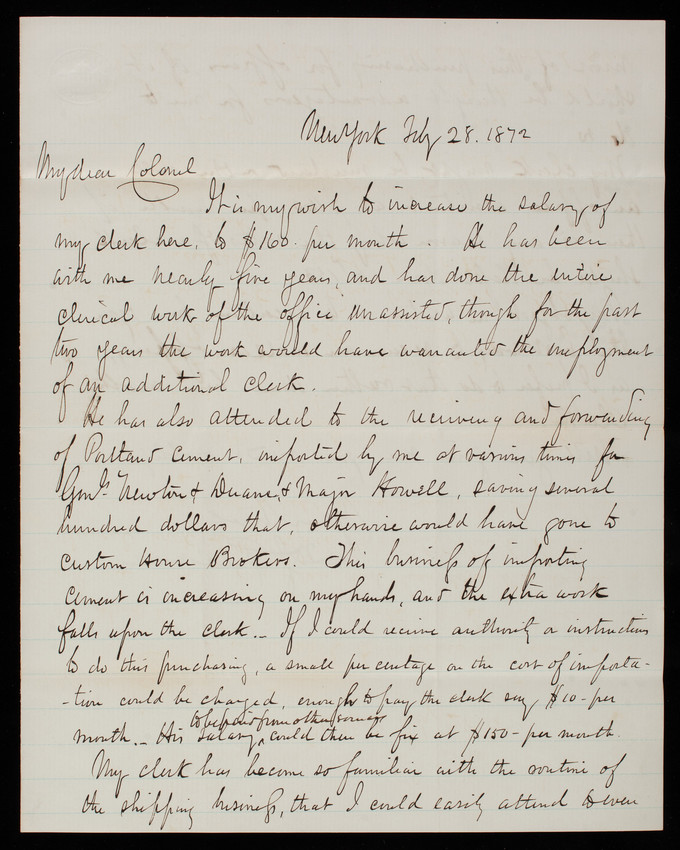 New York Feby 28. 1872
My dear Colonel
It is my wish to increase the salary of
my clerk here, to $160. per month. He has been
with me nearly five years, and has done the entire
clerical work of the office unassisted, though for the past
two years the work would have warranted the employment
of an additional clerk.
He has also attended to the receiving and forwarding
of Portland cement, imported by me at various times for
Genls Newton & Duane, & Major Howell, saving several
hundred dollars that, otherwise would have gone to
Custom House Brokers. This business of importing
cement is increasing on my hands, and the extra work
falls upon the clerk._ If I could receive authority or instructions
to do this purchasing, a small per centage on the cost of importa-
-tion could be charged, enough to pay the clerk say $10- per
month._ His salary, to be paid from other sources could then be fix at $150- per month.
My clerk has become so familiar with the routine of
the shipping business, that I could easily attend to even